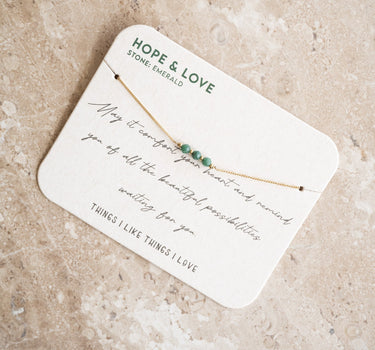 HOPE & LOVE
STONE: EMERALD
May it comfort your heart and remind
you of all the beautiful possibilities
waiting for you
THINGS I LIKE THINGS I LOVE